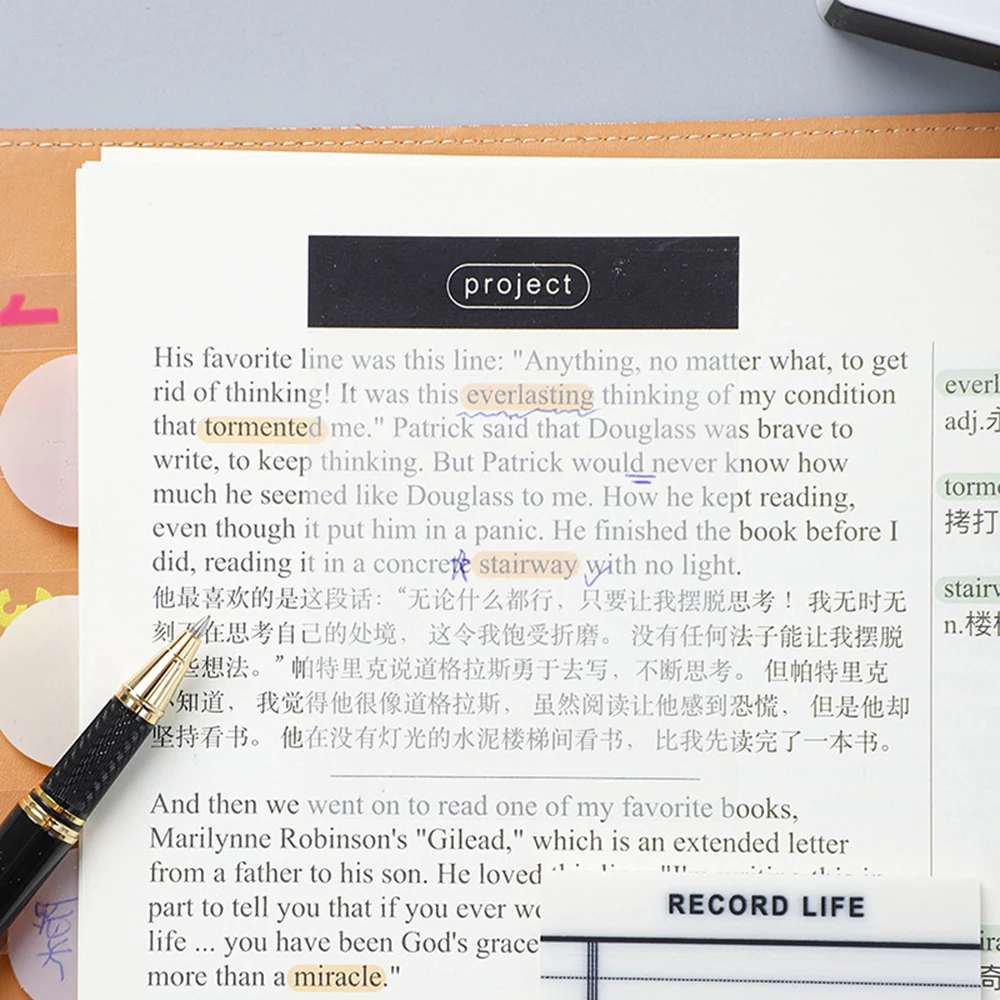 project
His favorite line was this line: "Anything, no matter what, to get
rid of thinking! It was this everlasting thinking of my condition
that tormented me." Patrick said that Douglass was brave to
write, to keep thinking. But Patrick would never know how
much he seemed like Douglass to me. How he kept reading,
even though it put him in a panic. He finished the book before I
did, reading it in a concrete stairway with no light.
他最喜欢的是这段话：“无论什么都行，只要让我摆脱思考！我无时无
刻不在思考自己的处境，这令我饱受折磨。没有任何法子能让我摆脱
些想法。”帕特里克说道格拉斯勇于去写，不断思考。但帕特里克
知道，我觉得他很像道格拉斯，虽然阅读让他感到恐慌，但是他却
坚持看书。他在没有灯光的水泥楼梯间看书，比我先读完了一本书。
And then we went on to read one of my favorite books,
Marilynne Robinson's "Gilead," which is an extended letter
from a father to his son. He loved this line: "I'm writing this in
part to tell you that if you ever
life ... you have been God's grace
more than a miracle."
adj.
拷打
n.楼
RECORD LIFE